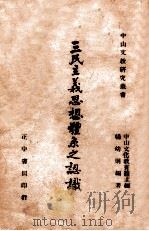 中山文敎硏究叢書
中山文化敎育館主編
楊幼炯編著
三民主義思想體系之認識
正中書局印行